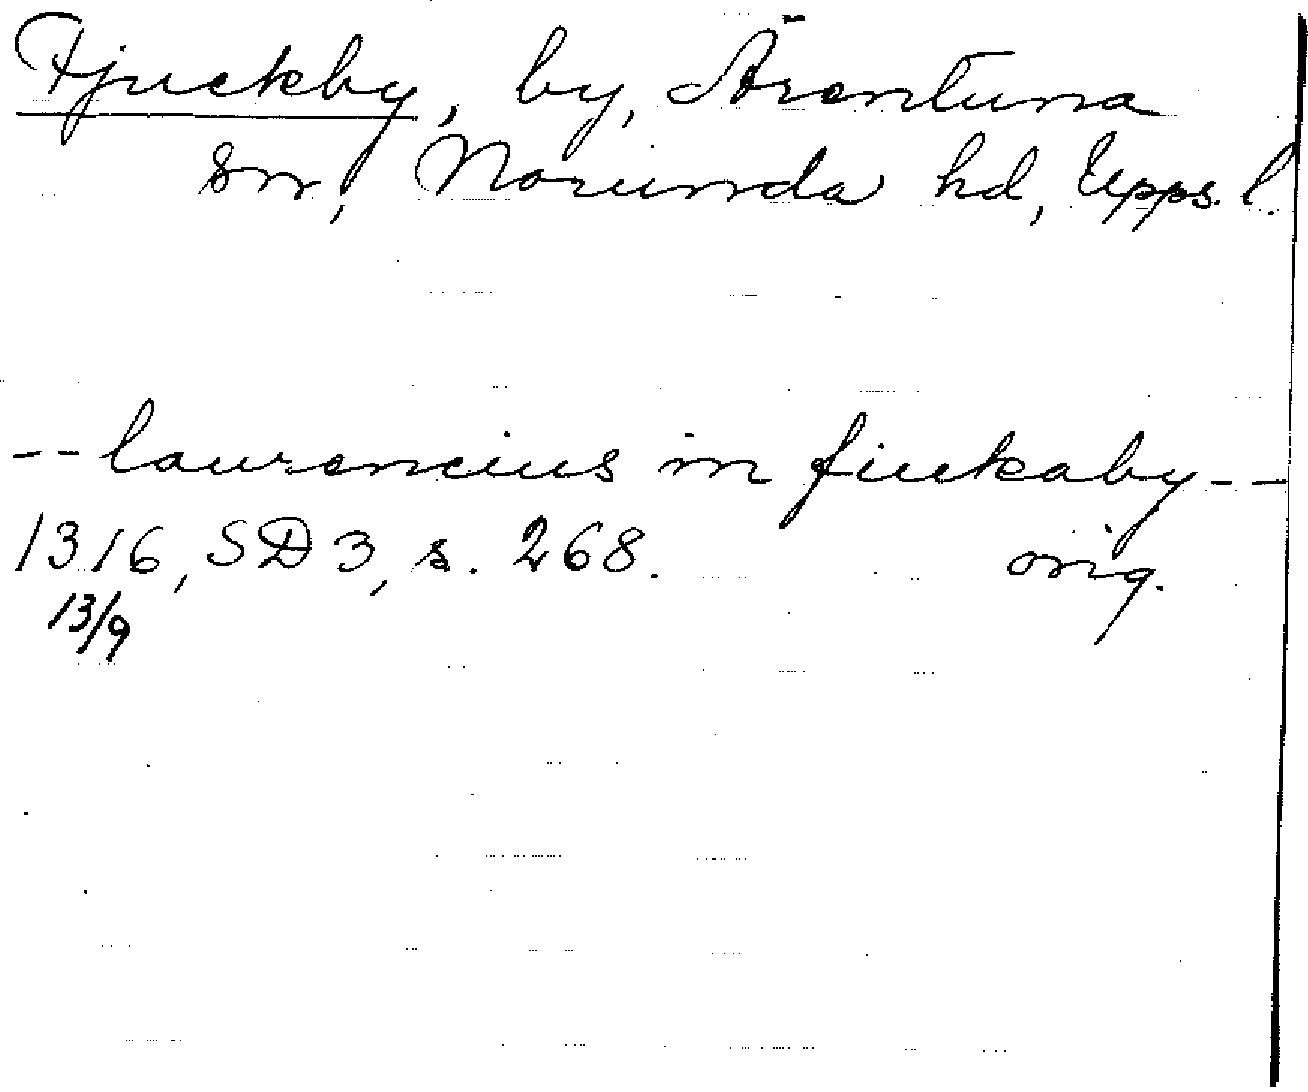 Fjuckby, by, Ärentuna
sn, Norunda hd, Upps. l.
-- laurencius in fiuckaby --
1316, SD 3, s. 268. orig.
13/9